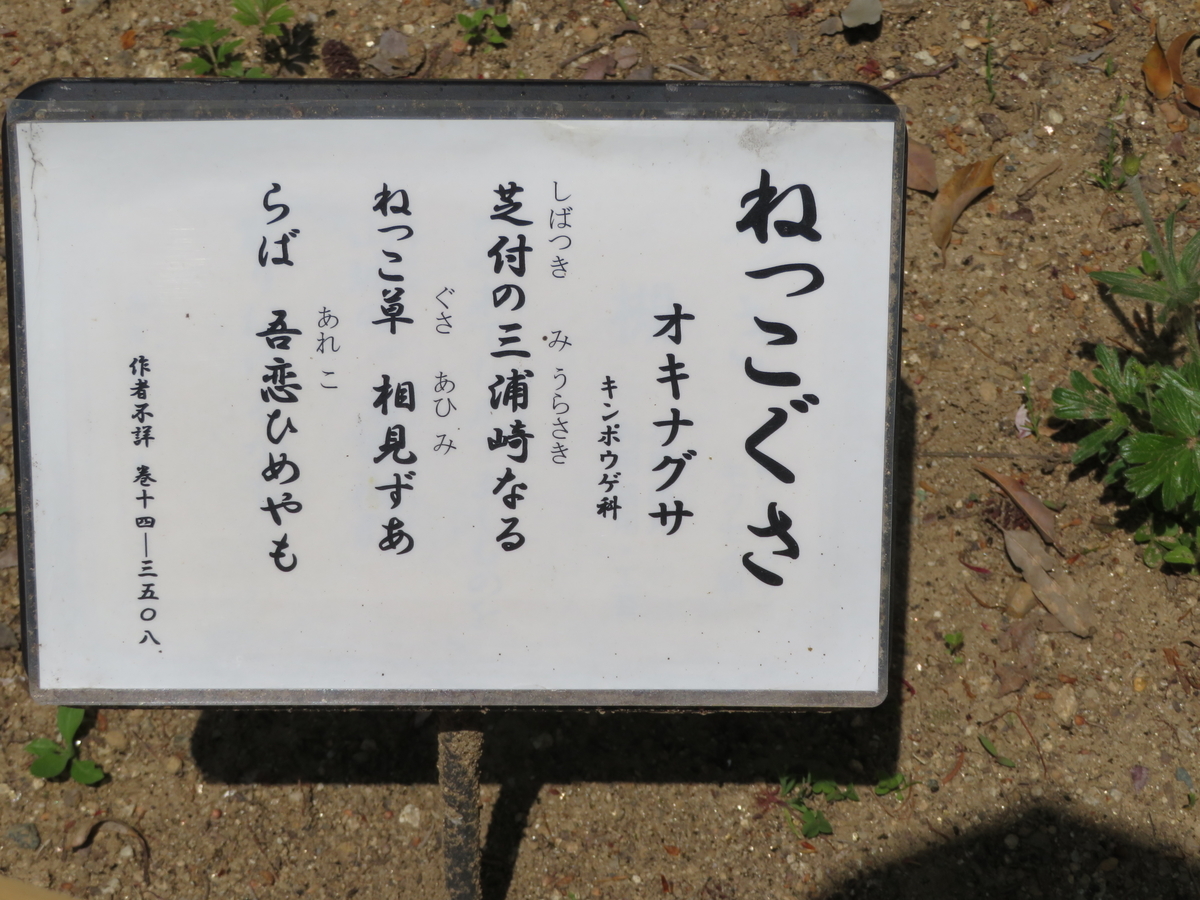 ねっこぐさ
オキナグサ
キンポウゲ科
しばつき みうらさき
芝付の三浦崎なる
ぐさ あひみ
ねっこ草 相見ずあ
あれ こ
らば 吾恋ひめやも
作者不詳 巻十四―三五〇八